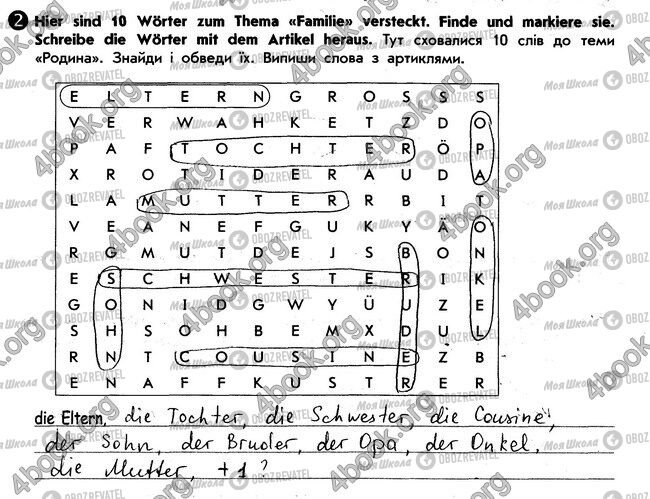 2 Hier sind 10 Wörter zum Thema «Familie» versteckt. Finde und markiere sie.
Schreibe die Wörter mit dem Artikel heraus. Тут сховалися 10 слів до теми
«Родина». Знайди і обведи їх. Випиши слова з артиклями.
E L T E R N G R O S S S
V E R W A H K E T Z D O
P A F T O C H T E R Ö P
X R O T I D E R A U D A
L A M U T T E R R B I T
V E A N E F G U K Y Ä O
R G M U T D E J S B O N
E S C H W E S T E R I K
G O N I D G W Y Ü U Z E
S H S O H B E M X D U L
R N T C O U S I N E Z B
E N A F F K U S T R E R
die Eltern, die Tochter, die Schwester, die Cousine,
der Sohn, der Bruder, der Opa, der Onkel,
die Mutter, +1?